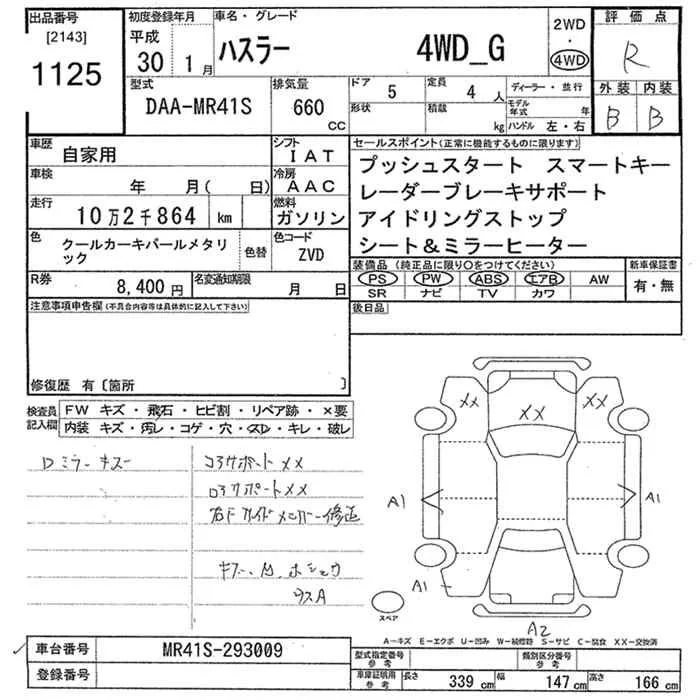 出品番号
[2143]
1125
初度登録年月
平成
30 1月
車名・グレード
ハスラー 4WD_G
2WD
・
4WD
評価点
R
外装 内装
B B
型式
DAA-MR41S
排気量
660
CC
ドア 5
定員 4人
形状
積載 kg
ディーラー・並行
モデル年式 年
ハンドル 左・右
車歴
自家用
シフト
IAT
車検
年 月( 日)
冷房
AAC
走行
10万2千864 km
燃料
ガソリン
色
クールカーキパールメタリック
色替
色コード
ZVD
R券
8,400円
名変通知期限
月 日
セールスポイント(正常に機能するものに限ります)
プッシュスタート スマートキー
レーダーブレーキサポート
アイドリングストップ
シート&ミラーヒーター
装備品(純正品に限り○をつけてください)
PS PW ABS エアB AW
SR ナビ TV カワ
新車保証書
有・無
後日品
注意事項申告欄(不具合内容等は具体的に記入して下さい)
修復歴 有〔箇所 〕
検査員
記入欄
FW キズ・飛石・ヒビ割・リペア跡・×要
内装 キズ・汚レ・コゲ・穴・スレ・キレ・破レ
Dミラーキズ
コアサポートXX
ロアサポートXX
右F サイドメンバー修正
XX
XX
XX
A1
A1
A1
A2
スペア
A-キズ E-エクボ U-凹み W-補修跡 S-サビ C-腐食 XX-交換済
車台番号
MR41S-293009
登録番号
型式指定番号
参考
類別区分番号
参考
車庫証明用
参考
長さ 339 cm
幅 147 cm
高さ 166 cm